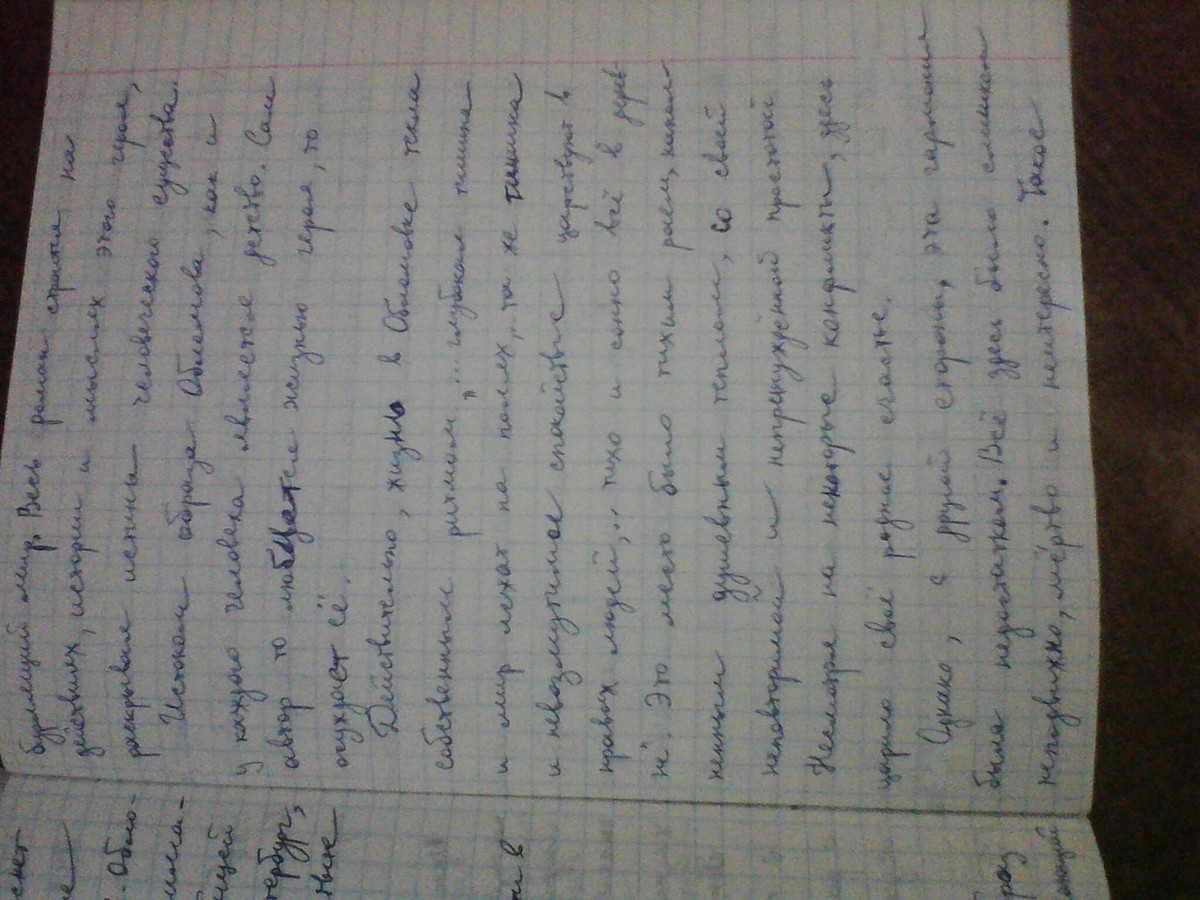 бурлящий мир. Весь роман строится на
действиях, истории и мыслях этого героя,
раскрывая истины человеческого существа.
Истоком образа Обломова, как и
у каждого человека является детство. Сам
автор то любуется жизнью героя, то
осуждает её.
Действительно, жизнь в Обломовке текла
собственным ритмом „... глубокая тишина
и мир лежат на полях, „та же тишина
и невозмутимое спокойствие царствуют в
нравах людей, „.. тихо и сонно всё в дерев-
не". Это место было тихим раем, напол
ненным душевным теплом, со своей
неповторимой и непринуждённой простотой
Несмотря на некоторые конфликты, здесь
царило своё родное счастье.
Однако, с другой стороны, эта гармония
была недостатком. Всё здесь было слишком
неподвижно, мёртво и неинтересно. Такое
Обло-
тербург,